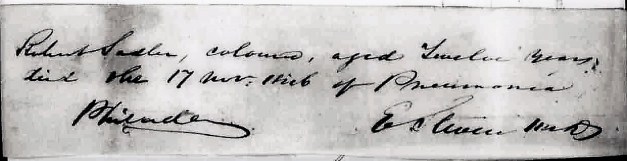 Robert Sadler, coloured, aged Twelve years,
died the 17 Nov: 1846 of Pneumonia
Philada E M.D.